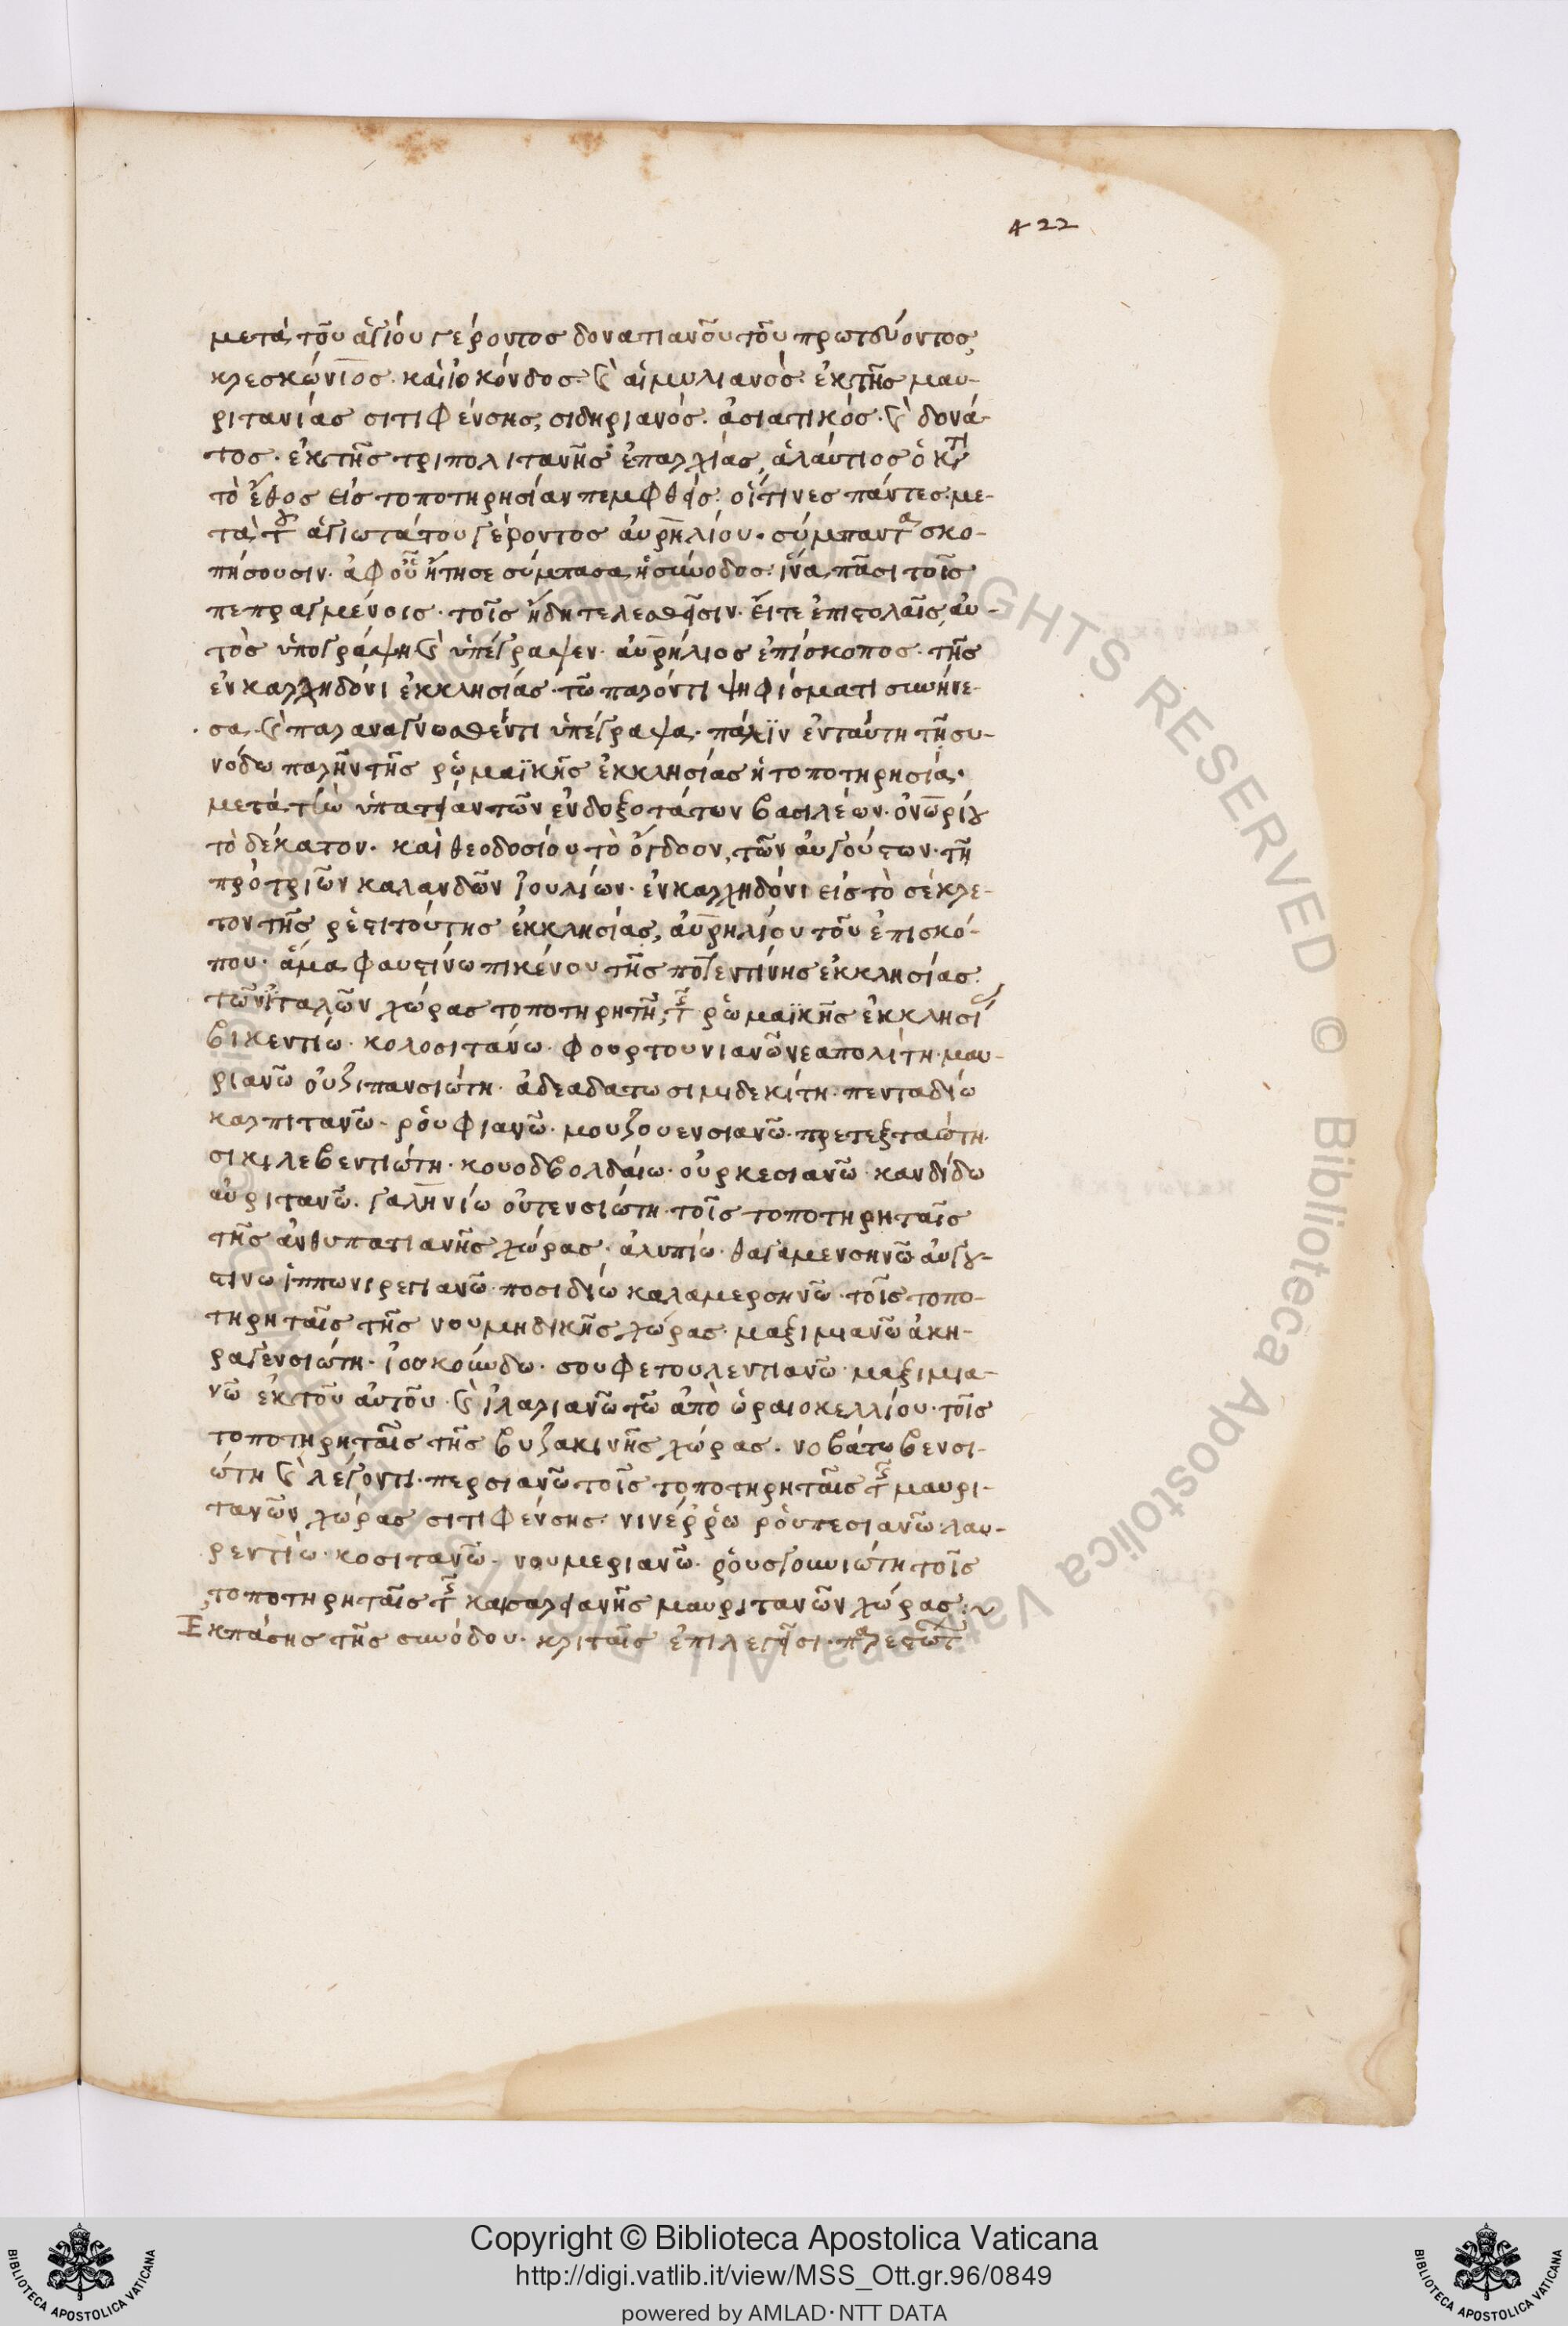 422
μετὰ τοῦ ἁγίου γέροντος δονατιανοῦ τοῦ πρωτεύοντος,
κρεσκώνιος· καὶ ἰοκόνδος· καὶ αἰμυλιανός· ἐκ τῆς μαυ-
ριτανίας σιτιφένσης, σιδηριανός· ἀσιατικός· καὶ δονά-
τος· ἐκ τῆς τριπολιτανῆς ἐπαρχίας, ἀλαύτιος ὁ κατὰ
τὸ ἔθος εἰς τοποτηρησίαν πεμφθείς· οἵτινες πάντες με-
τὰ τοῦ ἁγιωτάτου γέροντος αὐρηλίου· σύμπαντα σκο-
πήσουσιν· ἀφοῦ ᾔτησε σύμπασα ἡ σύνοδος· ἵνα πᾶσι τοῖς
πεπραγμένοις· τοῖς ἤδη τελεσθεῖσιν· εἴτε ἐπιστολαῖς, αὐ-
τὸς ὑπογράψη καὶ ὑπέγραψεν· αὐρήλιος ἐπίσκοπος τῆς
ἐν καρχηδόνι ἐκκλησίας· τῶ παρόντι ψηφίσματι συνήνε-
σα καὶ παραναγνωσθέντι ὑπέγραψα· πάλϊν ἐν ταύτη τῆ συ-
νόδω παρῆν τῆς ῥωμαϊκῆς ἐκκλησίας ἡ τοποτηρησία·
μετὰ τὴν ὑπατείαν τῶν ἐνδοξοτάτων βασιλέων· ὀνωρίου
τὸ δέκατον· καὶ θεοδοσίου τὸ ὄγδοον, τῶν αὐγούστων· τῆ
πρὸ τριῶν καλανδῶν ἰουλίων· ἐν καρχηδόνι εἰς τὸ σέκρε-
τον τῆς ῥεστιτούτης ἐκκλησίας, αὐρηλίου τοῦ ἐπισκό-
που· ἅμα φαυστίνω πικένου τῆς ποτεντίνης ἐκκλησίας
τῶν ἰταλῶν χώρας τοποτηρητῆ, τῆς ῥωμαϊκῆς ἐκκλησίας
βικεντίω· κολοσιτάνω· φουρτουνιανῶ νεαπολίτη· μαυ-
ριανῶ οὐζιπανσιώτη· ἀδεαδατω σιμιδεκίτη· πενταδίω
καρπιτανῶ· ῥουφιανῶ· μουζουενσιανῶ· πρετεξταώτη·
σικιλεβεντιώτη· κουοδβολδαίω· οὐρκεσιανῶ· κανδίδω
αὐριτανῶ· γαληνίω οὐτενσιώτη· τοῖς τοποτηρηταῖς
τῆς ἀνθυπατιανῆς χώρας· ἀλυπίω· θαγαμενσηνῶ αὐγου-
στίνω ἱππωνιρεγιανῶ· ποσιδίω καλαμερσηνῶ· τοῖς τοπο-
τηρηταῖς τῆς νουμηδικῆς χώρας· μαξιμιανῶ ἀκη-
ραγενσιώτη· ἰοσκούνδω· σουφετουλεντιανῶ· μαξιμια-
νῶ ἐκ τοῦ αὐτοῦ· καὶ ἱλαριανῶ τῶ ἀπὸ ὡραιοκελλίου· τοῖς
τοποτηρηταῖς τῆς βυζακινῆς χώρας· νοβάτω βενσι-
ώτη καὶ λέγοντι· περσιανῶ τοῖς τοποτηρηταῖς τῆς μαυρι-
τανῶν χώρας σιτιφένσης· νινέρρω ῥουπεσιανῶ· λαυ-
ρεντίω· κοσιτανῶ· νουμεριανῶ· ῥουσγουνιώτη τοῖς
τοποτηρηταῖς τῆς καισαριανῆς μαυριτανῶν χώρας:~
Ἐκ πάσης τῆς συνόδου· κριταῖς ἐπιλεγεῖσι· παρεστῶτ
RIGHTS RESERVED © Biblioteca Apostolica Vaticana ALL
Copyright © Biblioteca Apostolica Vaticana
http://digi.vatlib.it/view/MSS_Ott.gr.96/0849
powered by AMLAD·NTT DATA
BIBLIOTECA APOSTOLICA VATICANA
BIBLIOTECA APOSTOLICA VATICANA